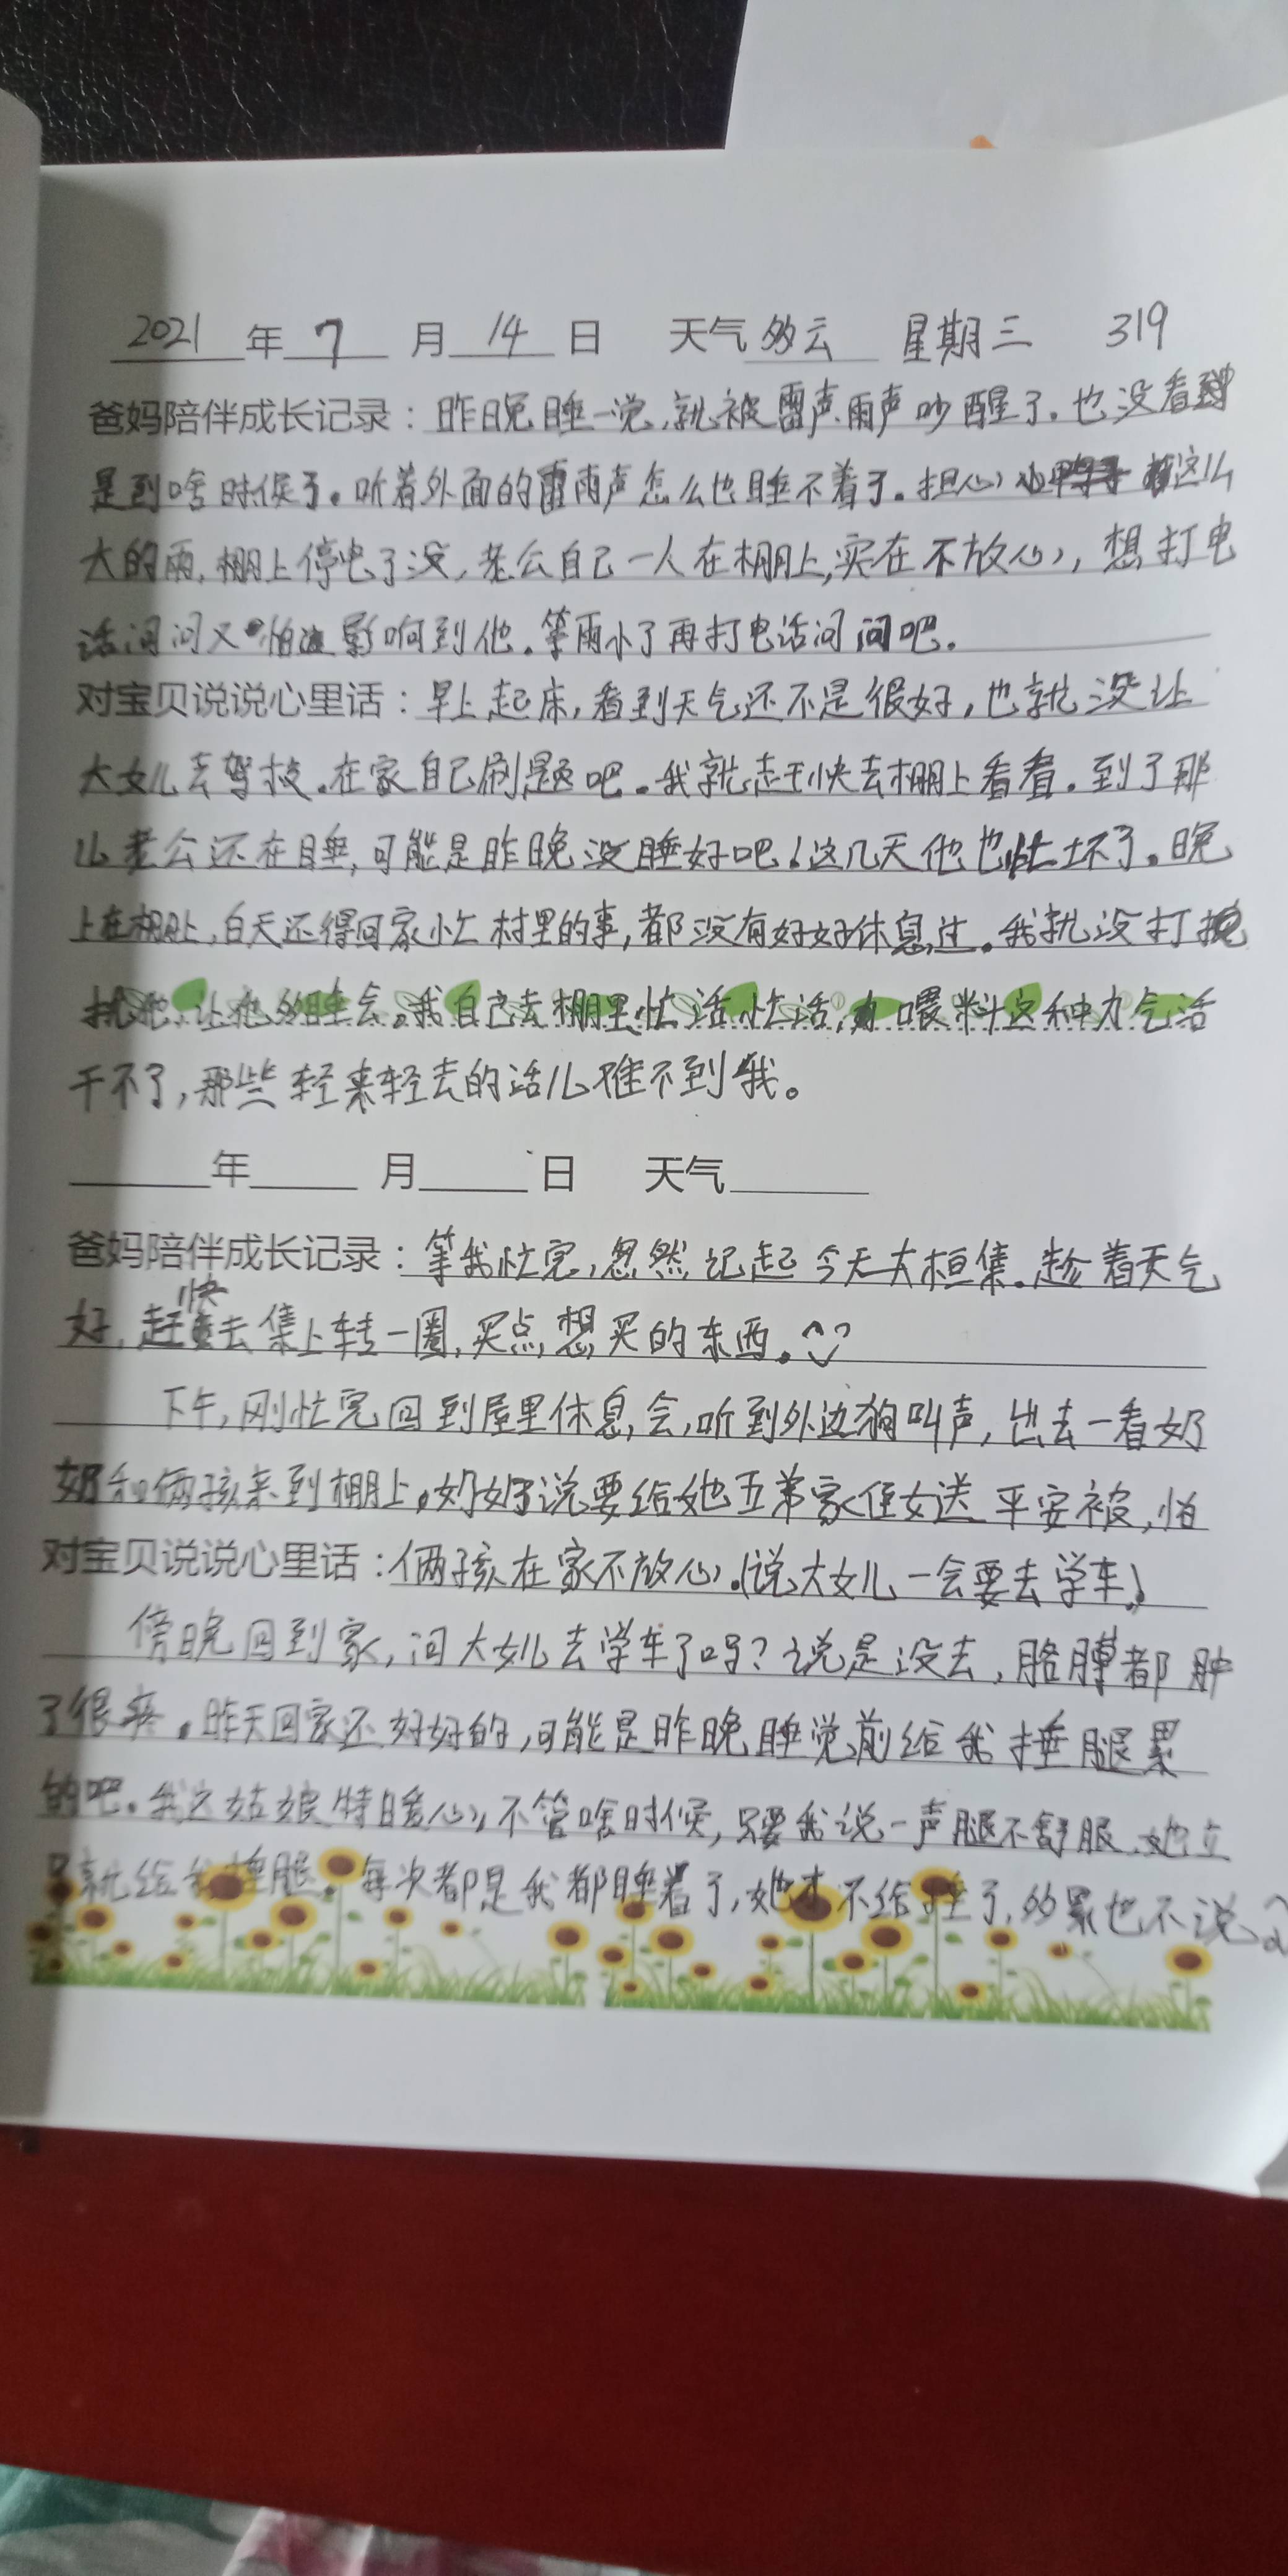 2021年7月14日 天气多云 星期三 319
爸妈陪伴成长记录：昨晚睡一觉,就被雷声、雨声吵醒了.也没看
是到啥时候了。听着外面的雷雨声怎么也睡不着了。担心 这么
大的雨,棚上停电了没,老公自己一人在棚上,实在不放心,想打电
话问问又怕 影响到他。等雨小了再打电话问问吧.
对宝贝说说心里话：早上起床,看到天气还不是很好,也就没让
大女儿去驾校.在家自己刷题吧。我就赶快去棚上看看.到了那
儿老公还在睡,可能是昨晚没睡好吧!这几天他也忙坏了。晚
上在棚上,白天还得回家忙村里的事,都没有好好休息过。我就没打搅
他,让他多睡会。我自己去棚里忙活忙活,喂料这种力气活
干不了,那些轻来轻去的活儿难不到我。
年 月 日 天气
爸妈陪伴成长记录：等我忙完,忽然记起今天大桓集.趁着天气
好,赶快去集上转一圈,买点想买的东西。
下午,刚忙完回到屋里休息会,听到外边狗叫声,出去一看奶
奶和俩孩来到棚上。奶奶说要给她五弟家侄女送平安被,怕
对宝贝说说心里话：俩孩在家不放心.(说大女儿一会要去学车.)
傍晚回到家,问大女儿去学车了吗?说是没去,胳膊都肿
了很疼。昨天回家还好好的,可能是昨晚睡觉前给我捶腿累
的吧。我这姑娘特暖心,不管啥时候,只要我说一声腿不舒服,她立
就给我捶腿。每次都是我都睡着了,她才不给捶了,多累也不说。